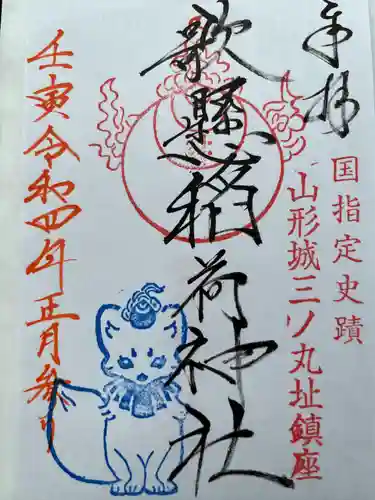 奉拝
国指定史蹟
山形城三ノ丸址鎮座
歌懸稲荷神社
壬寅令和四年正月参日